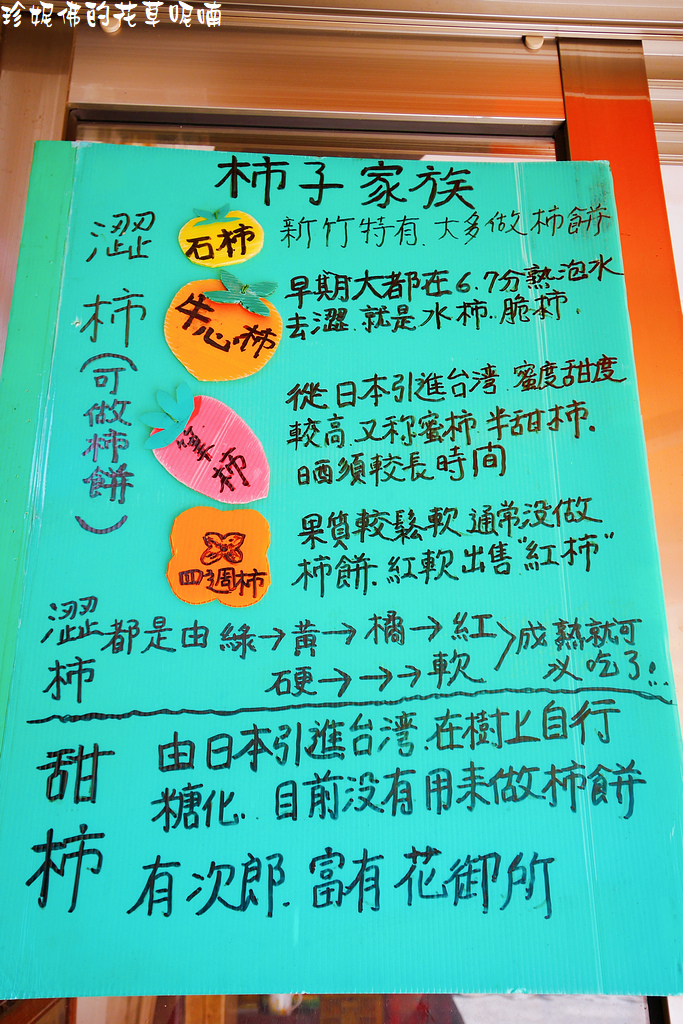 珍妮佛的花草呢喃
柿子家族
澀柿(可做柿餅)
石柿
新竹特有.大多做柿餅
牛心柿
早期大都在6.7分熟泡水
去澀.就是水柿.脆柿.
筆柿
從日本引進台灣.蜜度甜度
較高.又称蜜柿.半甜柿.
晒須較長時間
四週柿
果質較鬆軟.通常没做
柿餅.紅軟出售"紅柿"
澀柿
都是由綠→黃→橘→紅
硬→→→軟
成熟就可
以吃了!!
甜柿
由日本引進台灣.在樹上自行
糖化.目前没有用来做柿餅
有次郎.富有花御所